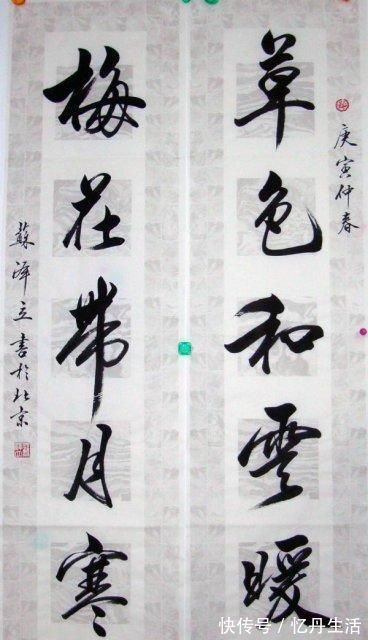 庚寅仲春
草色和雲暖
梅花帶月寒
蘇澤立書於北京
快传号/忆丹生活